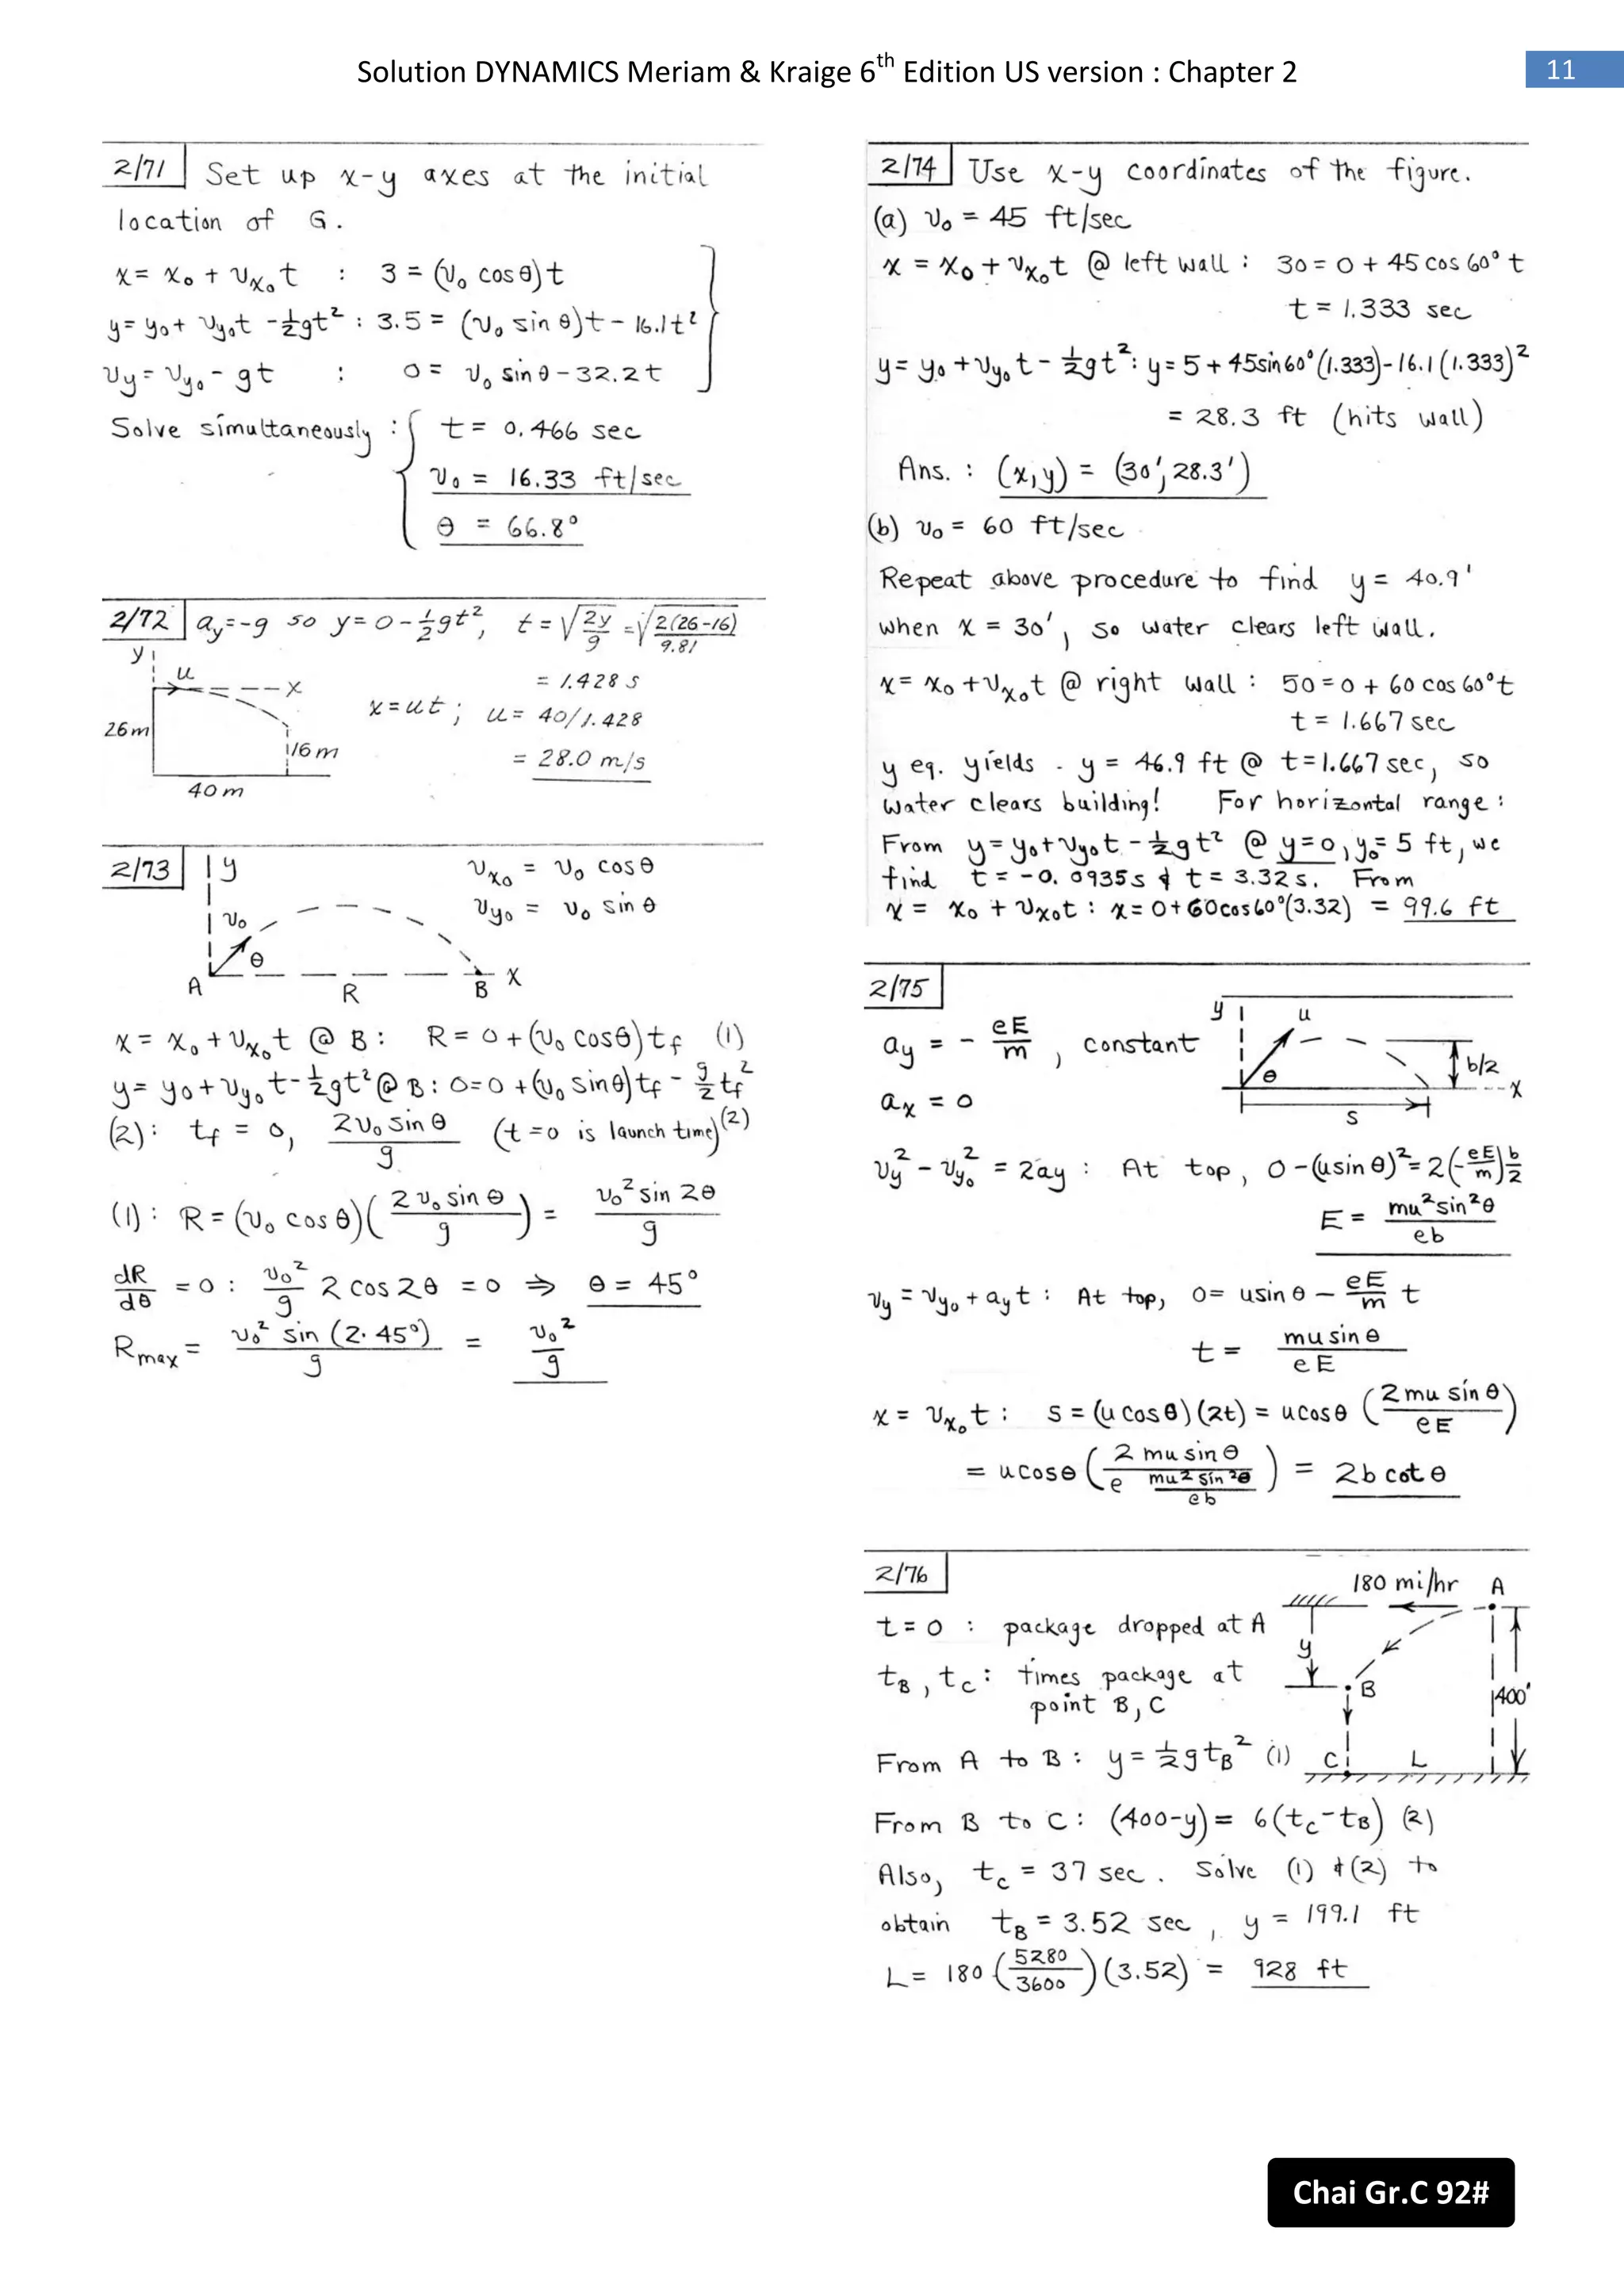 Solution DYNAMICS Meriam & Kraige 6th Edition US version : Chapter 2
11
2/71 Set up x-y axes at the initial
location of G.
x = x₀ + vₓ₀t : 3 = (v₀ cos θ)t
y = y₀ + v_y₀t - ½gt² : 3.5 = (v₀ sin θ)t - 16.1t²
v_y = v_y₀ - gt : 0 = v₀ sin θ - 32.2t
Solve simultaneously : { t = 0.466 sec
v₀ = 16.33 ft/sec
θ = 66.8°
2/72 a_y = -g so y = 0 - ½gt², t = √(2y/g) = √(2(26-16)/9.81)
y
u
x
= 1.428 s
x = ut ; u = 40/1.428
26 m
16 m
= 28.0 m/s
40 m
2/73
y
vₓ₀ = v₀ cos θ
v_y₀ = v₀ sin θ
v₀
θ
A
R
B
x
x = x₀ + vₓ₀t @ B : R = 0 + (v₀ cos θ)t_f (1)
y = y₀ + v_y₀t - ½gt² @ B : 0 = 0 + (v₀ sin θ)t_f - g/2 t_f²
(2)
(2) : t_f = 0, 2v₀ sin θ/g (t = 0 is launch time)
(1) : R = (v₀ cos θ)(2v₀ sin θ/g) = v₀² sin 2θ/g
dR/dθ = 0 : v₀²/g 2 cos 2θ = 0 ⇒ θ = 45°
R_max = v₀² sin (2·45°)/g = v₀²/g
2/74 Use x-y coordinates of the figure.
(a) v₀ = 45 ft/sec
x = x₀ + vₓ₀t @ left wall : 30 = 0 + 45 cos 60° t
t = 1.333 sec
y = y₀ + v_y₀t - ½gt² : y = 5 + 45 sin 60° (1.333) - 16.1 (1.333)²
= 28.3 ft (hits wall)
Ans. : (x,y) = (30', 28.3')
(b) v₀ = 60 ft/sec
Repeat above procedure to find y = 40.9'
when x = 30', so water clears left wall.
x = x₀ + vₓ₀t @ right wall : 50 = 0 + 60 cos 60° t
t = 1.667 sec
y eq. yields y = 46.9 ft @ t = 1.667 sec, so
water clears building! For horizontal range :
From y = y₀ + v_y₀t - ½gt² @ y = 0, y₀ = 5 ft, we
find t = -0.0935 s & t = 3.32 s. From
x = x₀ + vₓ₀t : x = 0 + 60 cos 60° (3.32) = 99.6 ft
2/75
a_y = - eE/m , constant
aₓ = 0
y
u
θ
b/2
x
s
v_y² - v_y₀² = 2ay : At top, 0 - (u sin θ)² = 2(-eE/m) b/2
E = mu² sin²θ/eb
v_y = v_y₀ + a_y t : At top, 0 = u sin θ - eE/m t
t = mu sin θ/eE
x = vₓ₀t : s = (u cos θ)(2t) = u cos θ (2 mu sin θ/eE)
= u cos θ (2 mu sin θ/(e mu² sin²θ/eb)) = 2b cot θ
2/76
180 mi/hr
A
t = 0 : package dropped at A
y
t_B, t_C : times package at
point B, C
B
400'
From A to B : y = ½gt_B² (1)
C
L
From B to C : (400-y) = 6(t_C - t_B) (2)
Also, t_C = 37 sec. Solve (1) & (2) to
obtain t_B = 3.52 sec, y = 199.1 ft
L = 180 (5280/3600)(3.52) = 928 ft
Chai Gr.C 92#